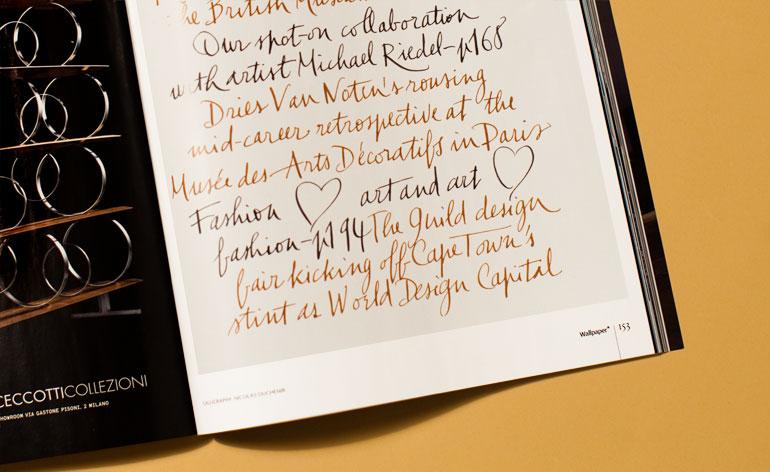 the British Museum
Our spot-on collaboration
with artist Michael Riedel–p168
Dries Van Noten's rousing
mid-career retrospective at the
Musée des Arts Décoratifs in Paris
Fashion ♡ art and art ♡
fashion–p194 The Guild design
fair kicking off Cape Town's
stint as World Design Capital
Wallpaper* 153
CALLIGRAPHY: NICOLAS OUCHENIR
CECCOTTICOLLEZIONI
SHOWROOM VIA GASTONE PISONI, 2 MILANO